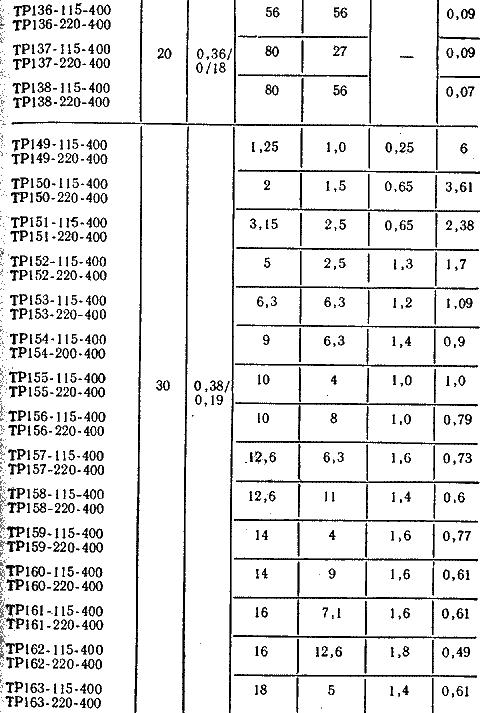 ТР136-115-400 56 56 0,09
ТР136-220-400
ТР137-115-400 20 0,36/ 80 27 — 0,09
ТР137-220-400 0/18
ТР138-115-400 80 56 0,07
ТР138-220-400
ТР149-115-400 1,25 1,0 0,25 6
ТР149-220-400
ТР150-115-400 2 1,5 0,65 3,61
ТР150-220-400
ТР151-115-400 3,15 2,5 0,65 2,38
ТР151-220-400
ТР152-115-400 5 2,5 1,3 1,7
ТР152-220-400
ТР153-115-400 6,3 6,3 1,2 1,09
ТР153-220-400
ТР154-115-400 9 6,3 1,4 0,9
ТР154-200-400
ТР155-115-400 30 0,38/ 10 4 1,0 1,0
ТР155-220-400 0,19
ТР156-115-400 10 8 1,0 0,79
ТР156-220-400
ТР157-115-400 12,6 6,3 1,6 0,73
ТР157-220-400
ТР158-115-400 12,6 11 1,4 0,6
ТР158-220-400
ТР159-115-400 14 4 1,6 0,77
ТР159-220-400
ТР160-115-400 14 9 1,6 0,61
ТР160-220-400
ТР161-115-400 16 7,1 1,6 0,61
ТР161-220-400
ТР162-115-400 16 12,6 1,8 0,49
ТР162-220-400
ТР163-115-400 18 5 1,4 0,61
ТР163-220-400